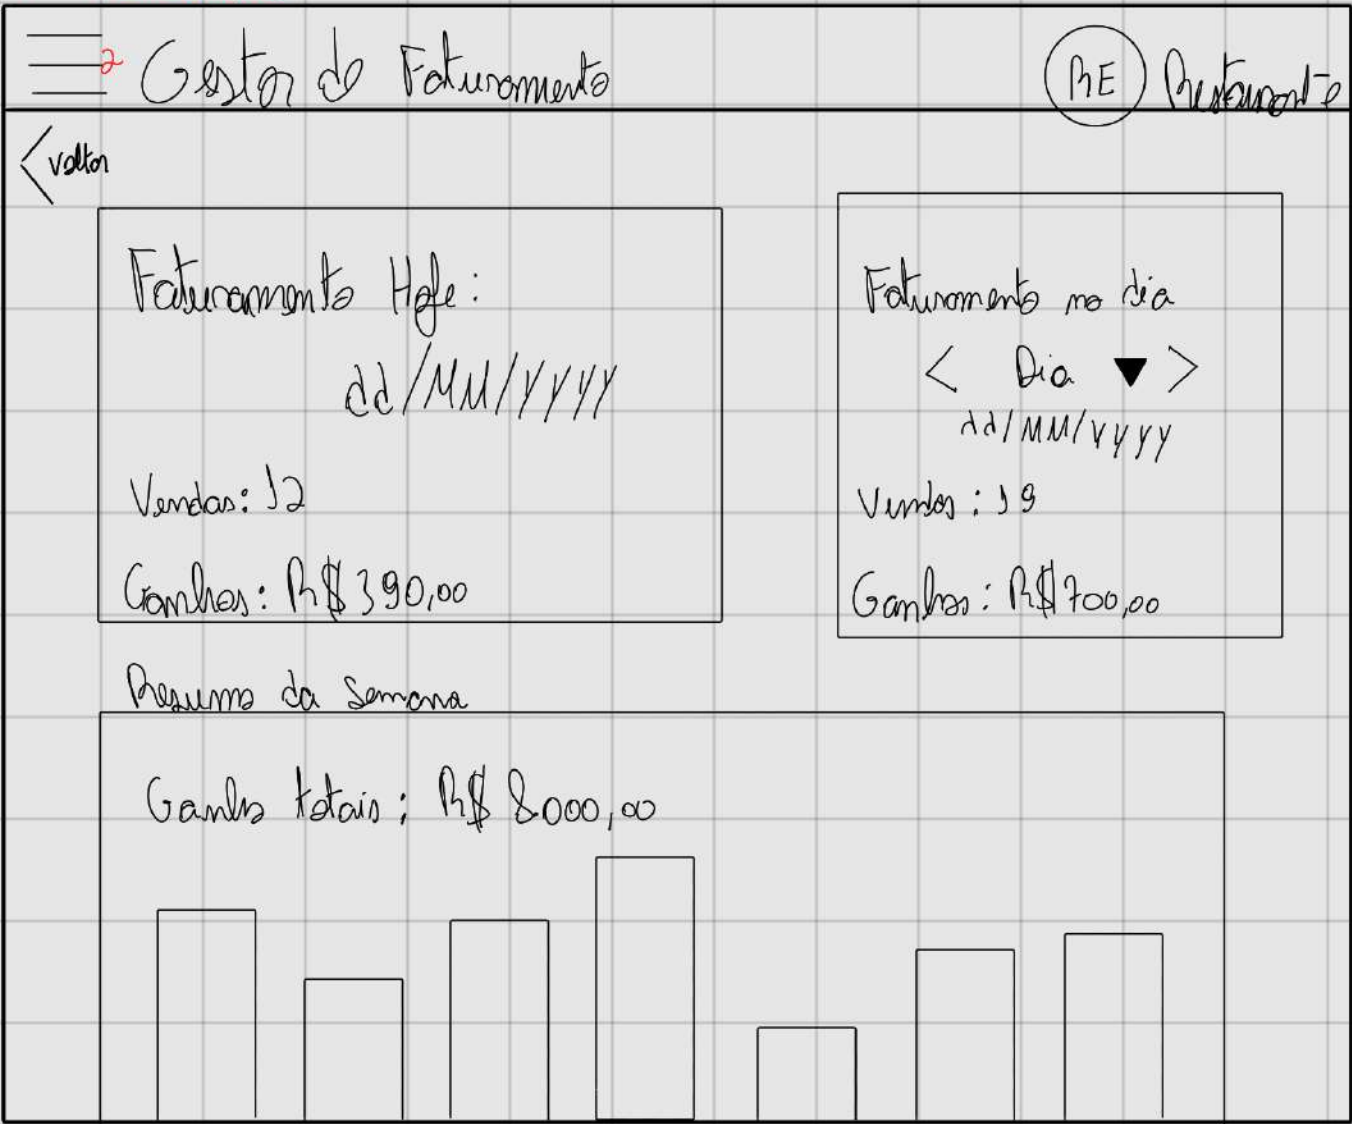 2 Gestor do Faturamento
RE Restaurante
< voltar
Faturamento Hoje:
dd/MM/YYYY
Vendas: 12
Ganhos: R$ 390,00
Faturamento no dia
< Dia ▼ >
dd/MM/YYYY
Vendas: 19
Ganhos: R$ 700,00
Resumo da Semana
Ganhos totais: R$ 8000,00